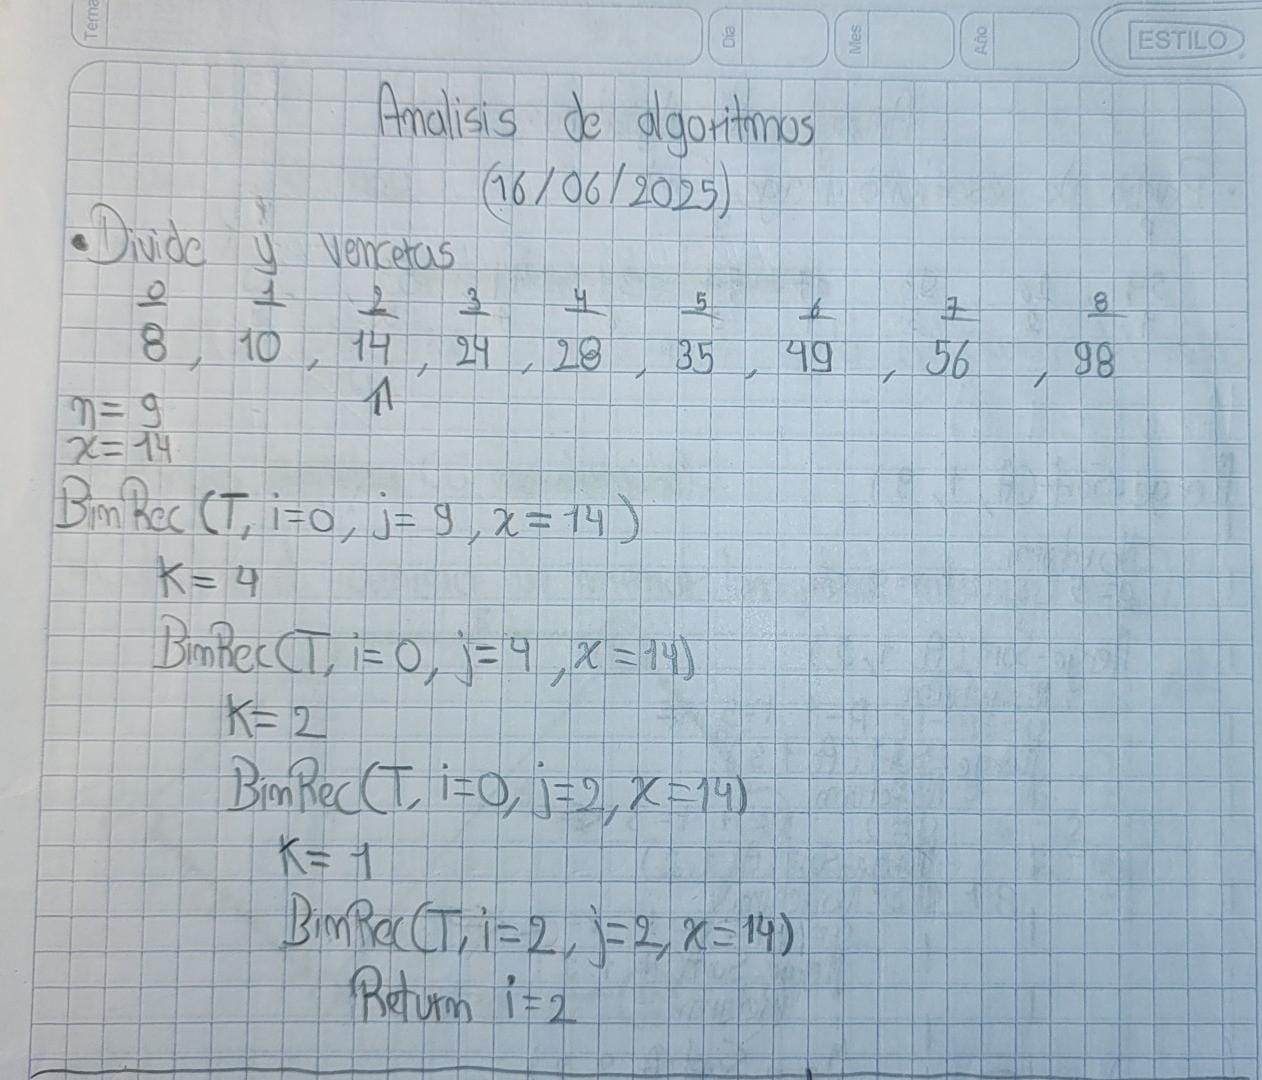 Tema
Día
Mes
Año
ESTILO
Analisis de algoritmos
(16/06/2025)
• Divide y venceras
0 1 2 3 4 5 6 7 8
8, 10, 14, 24, 28, 35, 49, 56, 98
n = 9
x = 14
BinRec (T, i=0, j= 9, x = 14)
K = 4
BinRec (T, i=0, j=4, x = 14)
K= 2
BinRec (T, i=0, j=2, x = 14)
K= 1
BinRec (T, i=2, j=2, x = 14)
Return i=2